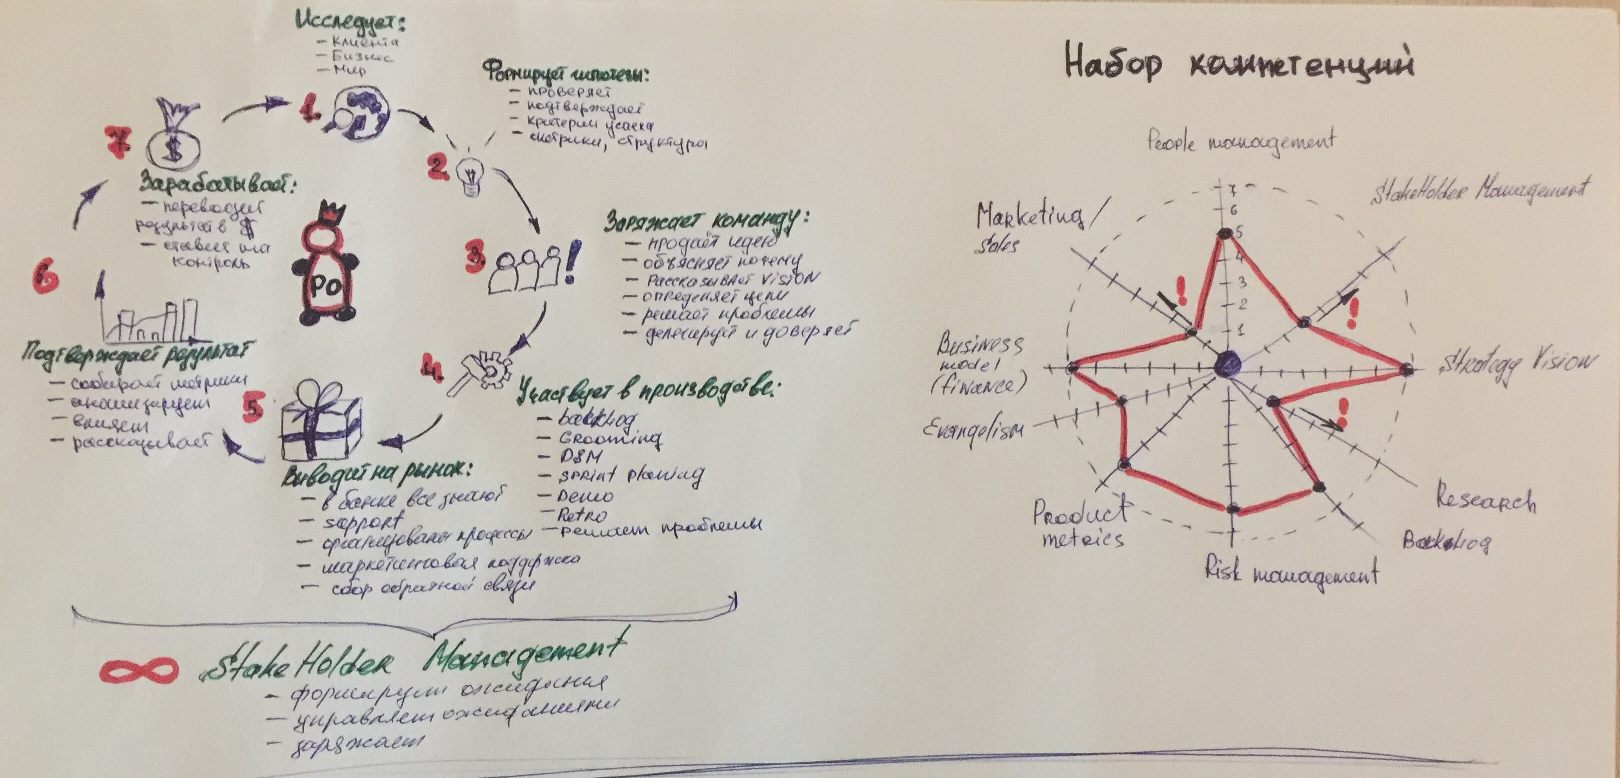 Исследует:
- Клиента
- Бизнес
- Мир
1.
Формирует гипотезы:
- проверяет
- подтверждает
- критерии успеха
- метрики, структура
2.
Заряжает команду:
- продаёт идею
- объясняет почему
- Рассказывает Vision
- определяет цели
- решает проблемы
- делегирует и доверяет
3.
!
4.
Участвует в производстве:
- backlog
- Grooming
- DSM
- sprint planing
- Demo
- Retro
- решает проблемы
5.
Выводит на рынок:
- в банке все знают
- support
- организованы процессы
- маркетинговая поддержка
- сбор обратной связи
6.
Подтверждает результат
- собирает метрики
- анализирует
- влияет
- рассказывает
7.
$
Зарабатывает:
- переводит
результат в $
- ставит на
контроль
PO
∞ StakeHolder Management
- формирует ожидания
- управляет ожиданиями
- заряжает
Набор компетенций
People management
StakeHolder Management
Strategy Vision
Research
Backlog
Risk management
Product
metrics
Evangelism
Business
model
(finance)
Marketing/
Sales
7
6
5
4
3
2
1
!
!
!